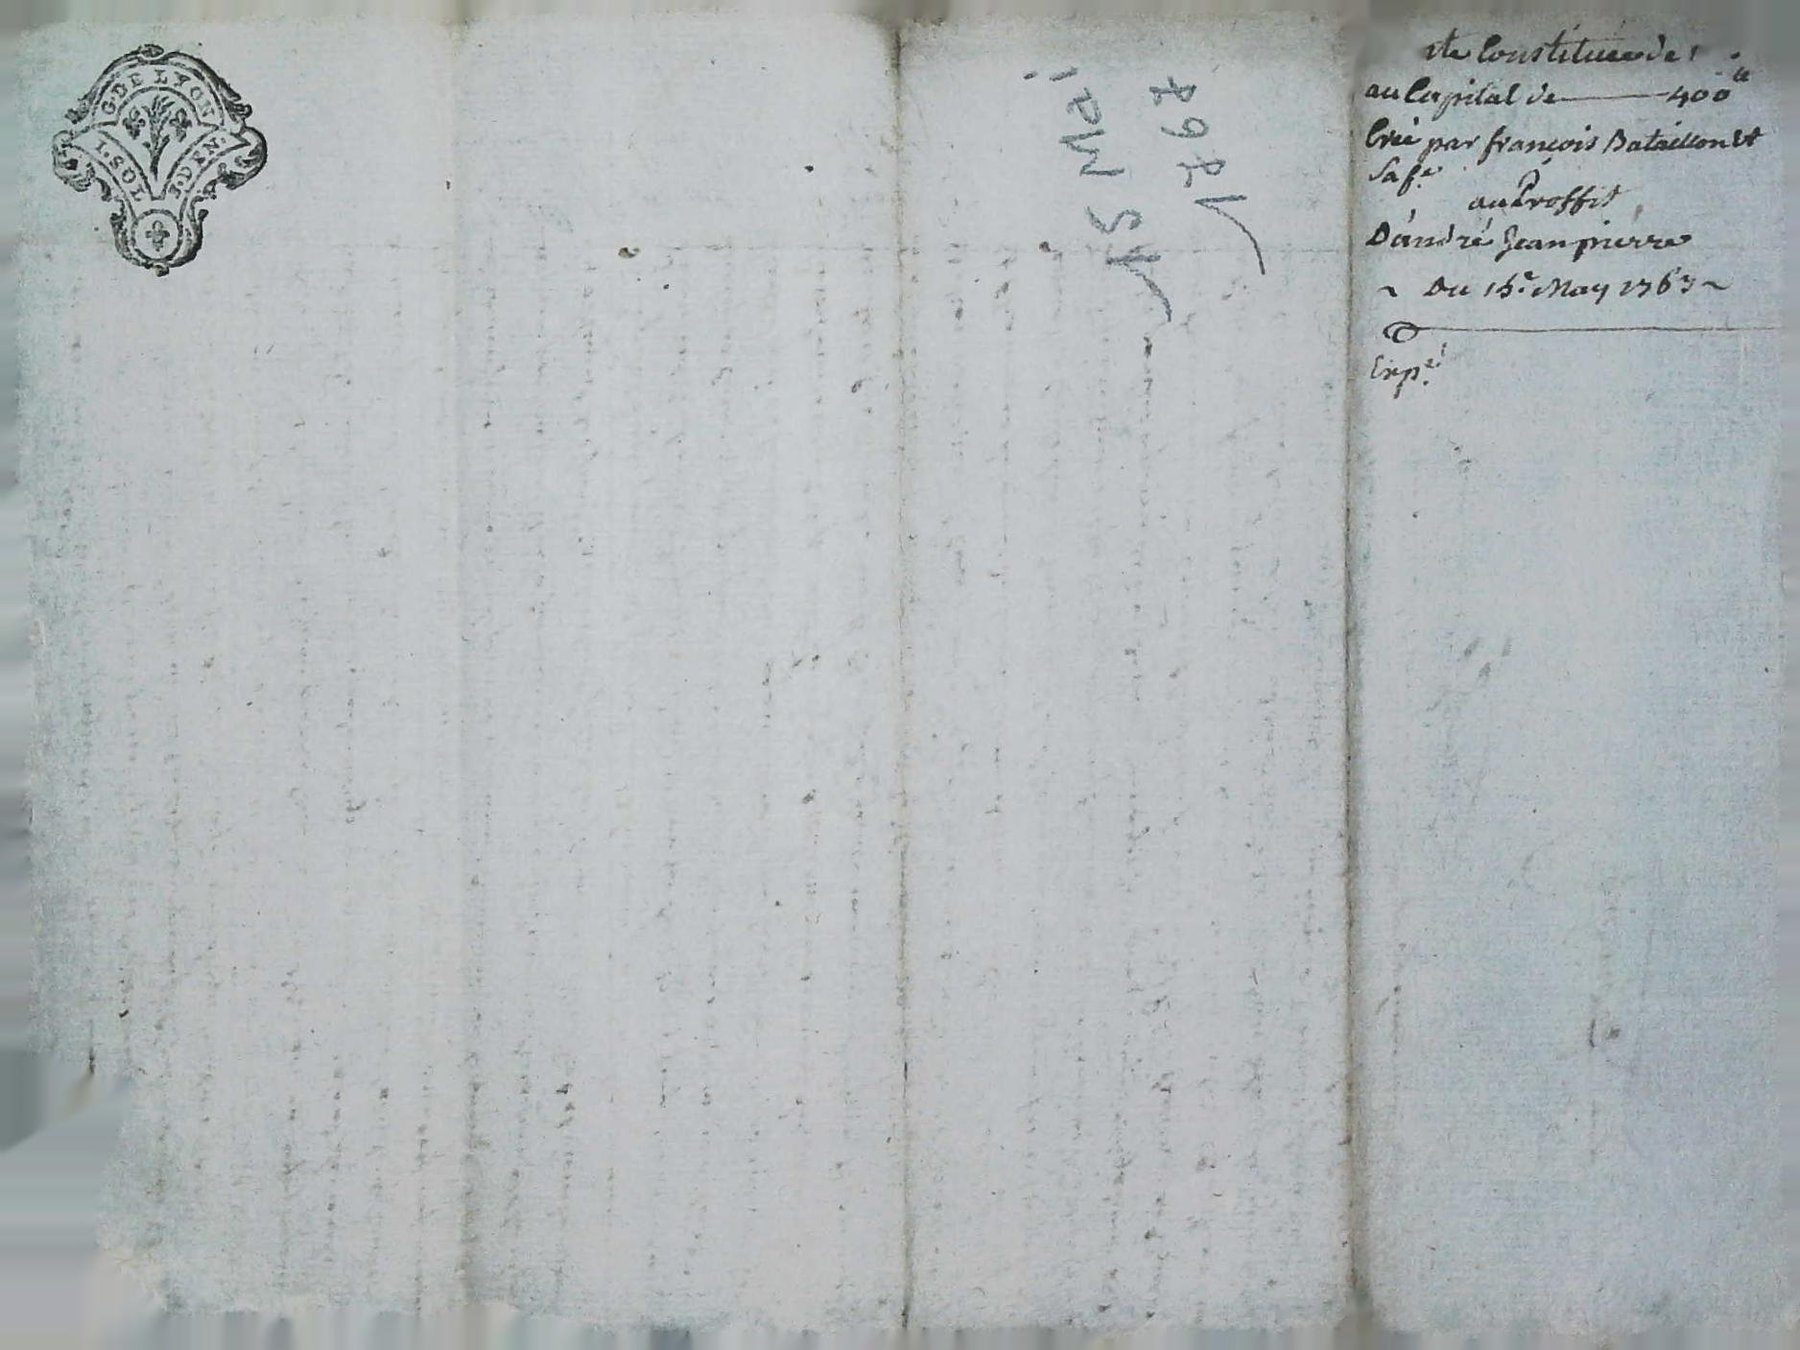 G. DE LYON
1. SOL 4. DEN.
15 Mai
1767
te Constituée de
au Capital de 400
Créé par françois Bataillon et
Sa fe
au Proffit
D'andré Jean pierre
~ Du 15e May 1767 ~
Expé